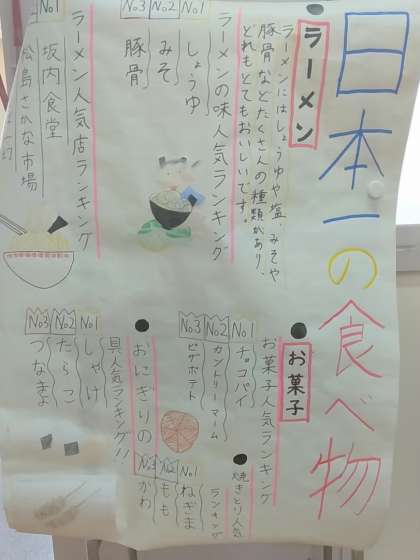 日本一の食べ物
●ラーメン
ラーメンにはしょうゆや塩、みそや
豚骨などたくさんの種類があり、
どれもとてもおいしいです。
ラーメンの味人気ランキング
No1 しょうゆ
No2 みそ
No3 豚骨
ラーメン人気店ランキング
No1 坂内食堂
松島さかな市場
●お菓子
お菓子人気ランキング
No1 チョコパイ
No2 カントリーマーム
No3 ピザポテト
●焼きとり人気
ランキング
No1 ねぎま
No2 もも
No3 かわ
●おにぎりの
具人気ランキング!!
No1 しゃけ
No2 たらこ
No3 つなまよ